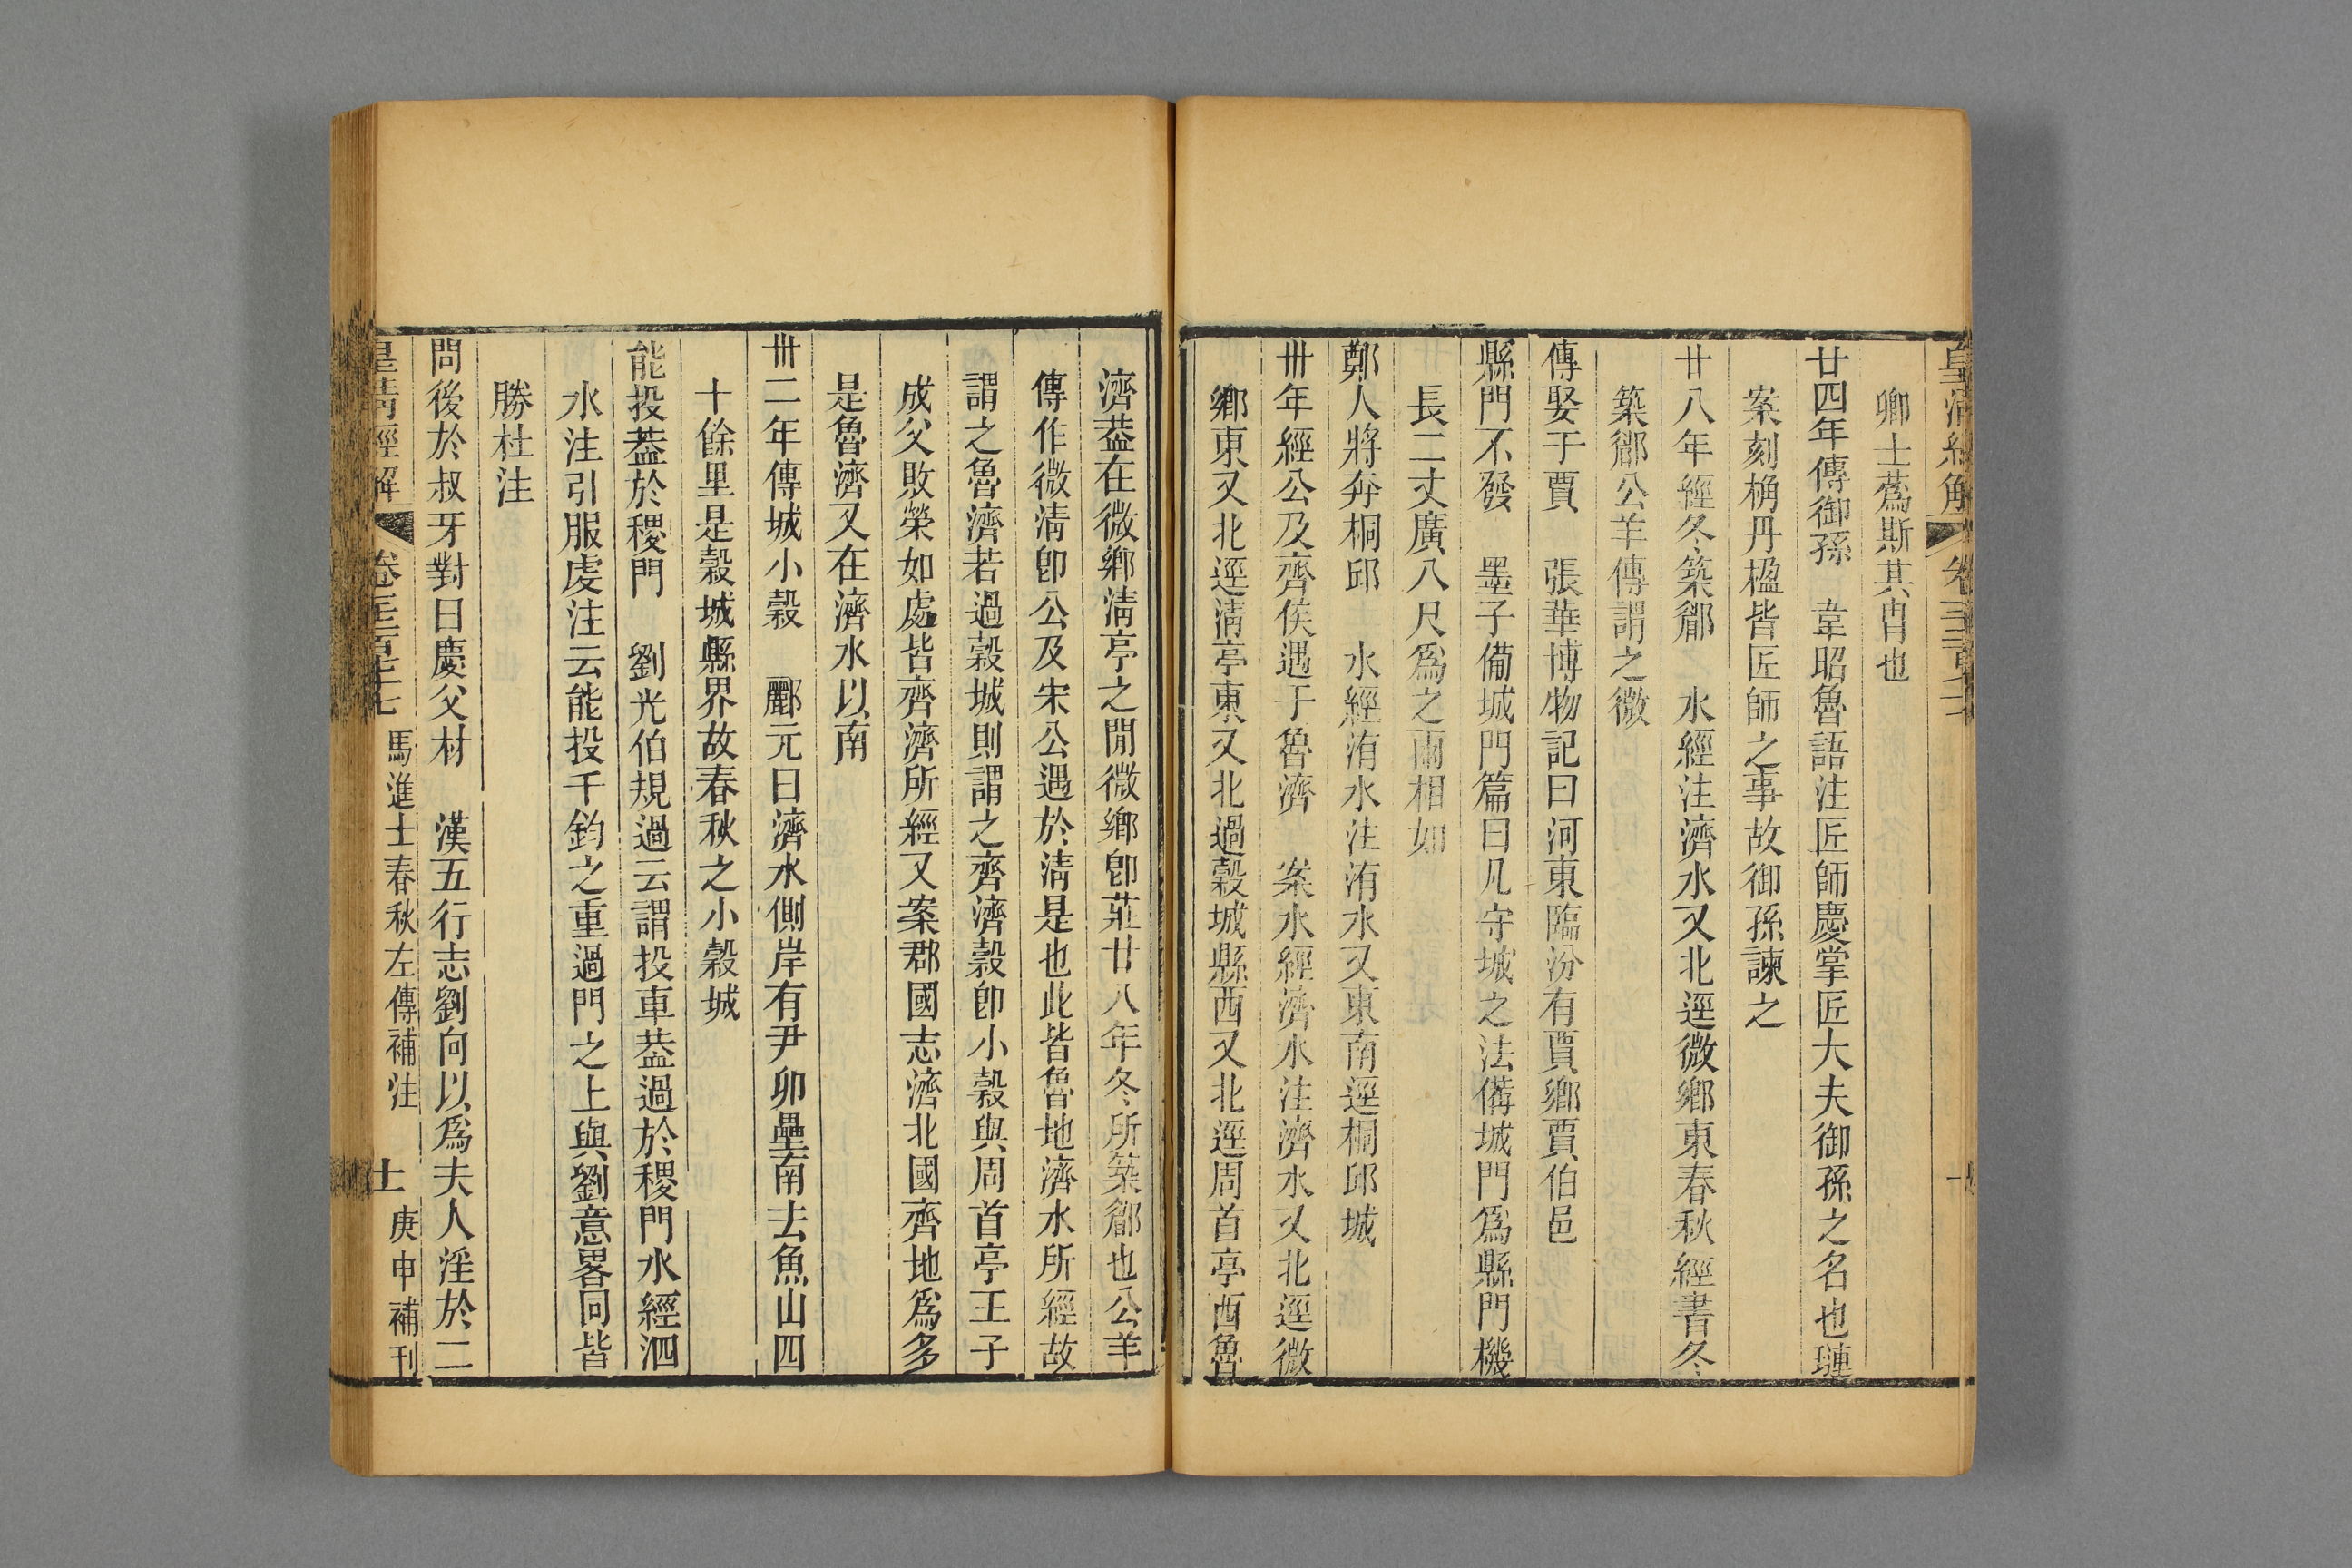 卿士蔿斯其胄也
廿四年傳御孫　韋昭魯語注匠師慶掌匠大夫御孫之名也璉
案刻桷丹楹皆匠師之事故御孫諫之
廿八年經冬築郿　水經注濟水又北逕微鄉東春秋經書冬
築郿公羊傳謂之微
傳娶于賈　張華博物記曰河東臨汾有賈鄉賈伯邑
縣門不發　墨子備城門篇曰凡守城之法備城門爲縣門機
長二丈廣八尺爲之兩相如
鄭人將奔桐邱　水經洧水注洧水又東南逕桐邱城
卅年經公及齊侯遇于魯濟　案水經濟水注濟水又北逕微
鄉東又北逕淸亭東又北過穀城縣西又北逕周首亭西魯
濟葢在微鄉淸亭之閒微鄉卽莊廿八年冬所築郿也公羊
傳作微淸卽公及宋公遇於淸是也此皆魯地濟水所經故
謂之魯濟若過穀城則謂之齊濟穀卽小穀與周首亭王子
成父敗榮如處皆齊濟所經又案郡國志濟北國齊地爲多
是魯濟又在濟水以南
卅二年傳城小穀　酈元曰濟水側岸有尹卯壘南去魚山四
十餘里是穀城縣界故春秋之小穀城
能投葢於稷門　劉光伯規過云謂投車葢過於稷門水經泗
水注引服虔注云能投千鈞之重過門之上與劉意畧同皆
勝杜注
問後於叔牙對曰慶父材　漢五行志劉向以爲夫人淫於二
皇淸經解　卷　馬進士春秋左傳補注　十一　庚申補刊